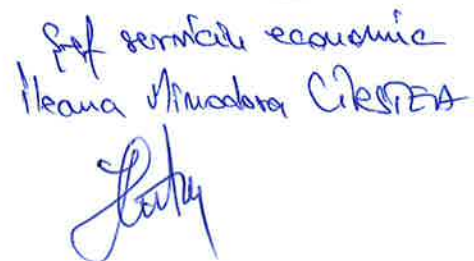 Șef serviciu economic
Ileana Minodora CÎRSTEA